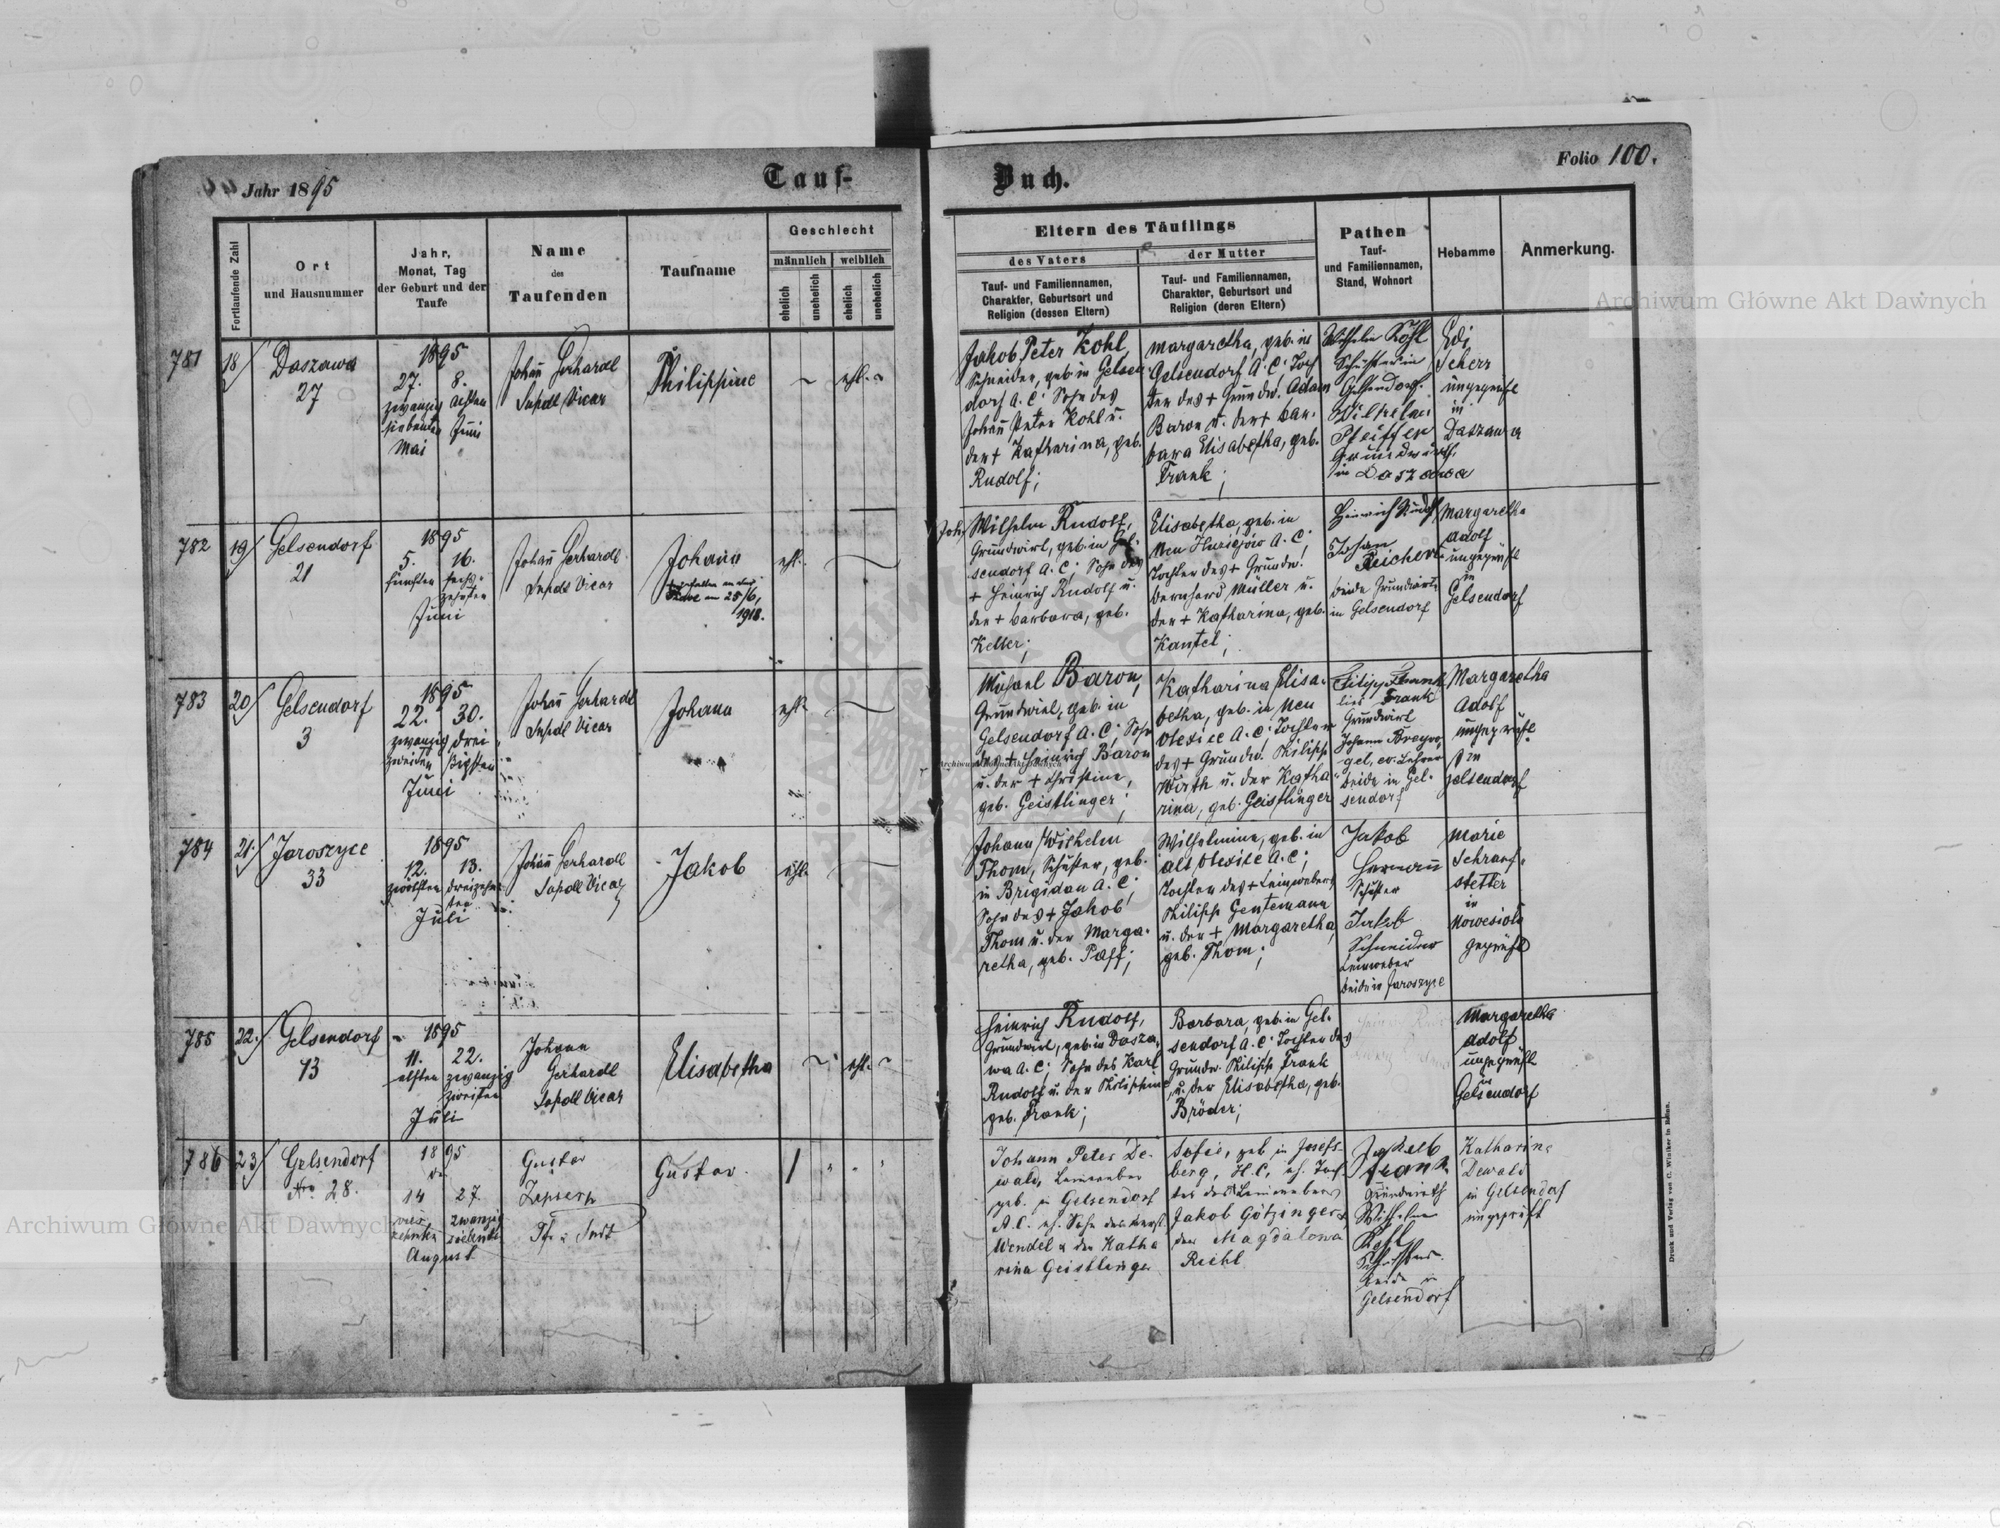 Jahr 1895
Tauf-
Buch.
Folio 100.
Fortlaufende Zahl
Ort
und Hausnummer
Jahr,
Monat, Tag
der Geburt und der
Taufe
Name
des
Taufenden
Taufname
Geschlecht
männlich
weiblich
ehelich
unehelich
ehelich
unehelich
Eltern des Täuflings
des Vaters
Tauf- und Familiennamen,
Charakter, Geburtsort und
Religion (dessen Eltern)
der Mutter
Tauf- und Familiennamen,
Charakter, Geburtsort und
Religion (deren Eltern)
Pathen
Tauf-
und Familiennamen,
Stand, Wohnort
Hebamme
Anmerkung.
781
18/
Daszawa
27
1895
27. 8.
zwanzig achten
siebenten Juni
Mai
Johann Gerhardt
Supdt Vicar
Philippine
ehl.
Jakob Peter Kohl,
Schneider, geb. in Gelsen
dorf A. C. Sohn des
Johann Peter Kohl u.
der + Katharina, geb.
Rudolf;
Margaretha, geb. in
Gelsendorf A. C. Toch
ter des + Grundw. Adam
Baron u. der + Bar-
bara Elisabetha, geb.
Frank;
Wilhelm Kohl
Schuster in
Gelsendorf.
Wilhelm
Pfeiffer
Grundwirth
in Daszawa
Edi
Scherr
ungeprüft
in
Daszawa
782
19/
Gelsendorf
21
1895
5. 16.
fünften sech-
zehnten
Juni
Johann Gerhardt
Supdt Vicar
Johann
am 25/6,
1918.
ehl.
Joh.
Wilhelm Rudolf,
Grundwirt, geb. in Gel-
sendorf A. C; Sohn des
+ Heinrich Rudolf u.
der + Barbara, geb.
Keller;
Elisabetha, geb. in
A. C;
Tochter des + Grundw.
Bernhard Müller u.
der + Katharina, geb.
Kantel;
Heinrich Rudolf
Johann
Reichert
beide Grundwirte
in Gelsendorf
Margaretha
Adolf
ungeprüft
in
Gelsendorf
783
20/
Gelsendorf
3
1895
22. 30.
zwanzig drei
zweiten ßigsten
Juni
Johann Gerhardt
Supdt Vicar
Johann
ehl.
Michael Baron,
Grundwirt, geb. in
Gelsendorf A. C; Sohn
des + Heinrich Baron
u. der + Christine,
geb. Geistlinger;
Katharina Elisa-
betha, geb. in Neu
Olexice A. C; Tochter
des + Grundw. Philipp
Wirth u. der Katha
rina, geb. Geistlinger
Frank
Grundwirt
Johann
gel, ev. Lehrer
beide in Gel-
sendorf
Margaretha
Adolf
ungeprüft
in
Gelsendorf
784
21/
Jaroszyce
33
1895
12. 13.
zwölften dreizehn
ten
Juli
Johann Gerhardt
Supdt Vicar
Jakob
ehl.
Johann Wilhelm
Thom, Schuster, geb.
in Brigidau A. C;
Sohn des + Jakob
Thom u. der Marga-
retha, geb. Paff;
Wilhelmine, geb. in
alt Olexice A. C;
Tochter des + Leinwebers
Philipp Gentemann
u. der + Margaretha
geb. Thom;
Jakob
Hermann
Schuster
Jakob
Schneider
Leinweber
beide in Jaroszyce
Marie
Schraf-
stetter
in
Nowesiolo
geprüft
785
22/
Gelsendorf
13
1895
11. 22.
elften zwanzig
zweiten
Juli
Johann
Gerhardt
Supdt Vicar
Elisabetha
ehl.
Heinrich Rudolf,
Grundwirt, geb. in Dasza-
wa A. C; Sohn des Karl
Rudolf u. der Philippine
geb. Frank;
Barbara, geb. in Gel-
sendorf A. C. Tochter des
Grundw. Philipp Frank
u. der Elisabetha, geb.
Bröder;
Margaretha
Adolf
ungeprüft
in
Gelsendorf
786
23/
Gelsendorf
Nro 28.
1895
14 27.
vier zwanzig
zehnten siebent
August
Gustav
Gustav
Johann Peter De-
wald, Leinweber
geb. in Gelsendorf
A. C. eh. Sohn des
Wendel u der Katha
rina Geistlinger
Sofie, geb in Josefs
berg, H. C, eh. Toch
ter des Leinwebers
Jakob Götzinger
der Magdalena
Riehl
Jakob
Frank
Grundwirth
Wilhelm
Kohl
Schuster
beide in
Gelsendorf
Katharina
Dewald
in Gelsendorf
ungeprüft
Druck und Verlag von C. Winiker in Brünn.
Archiwum Główne Akt Dawnych
Archiwum Główne Akt Dawnych